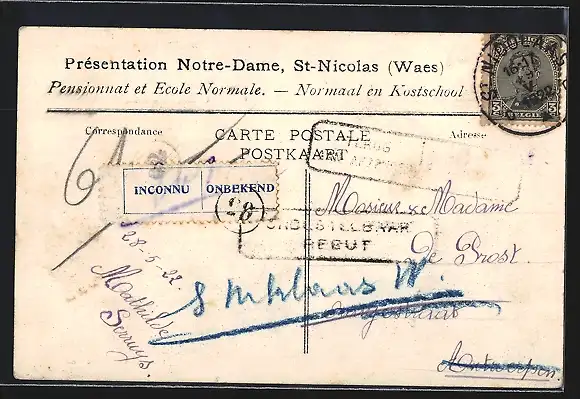 Présentation Notre-Dame, St-Nicolas (Waes)
Pensionnat et Ecole Normale. — Normaal en Kostschool
3
BELGIE
Correspondance
CARTE POSTALE
POSTKAART
Adresse
TERUG
INCONNU ONBEKEND
28
ONBESTELBAAR
REBUT
Monsieur & Madame
De Prost.
Antwerpen.
28-5-22
Mathilde
Serruys.
S Niklaas W.